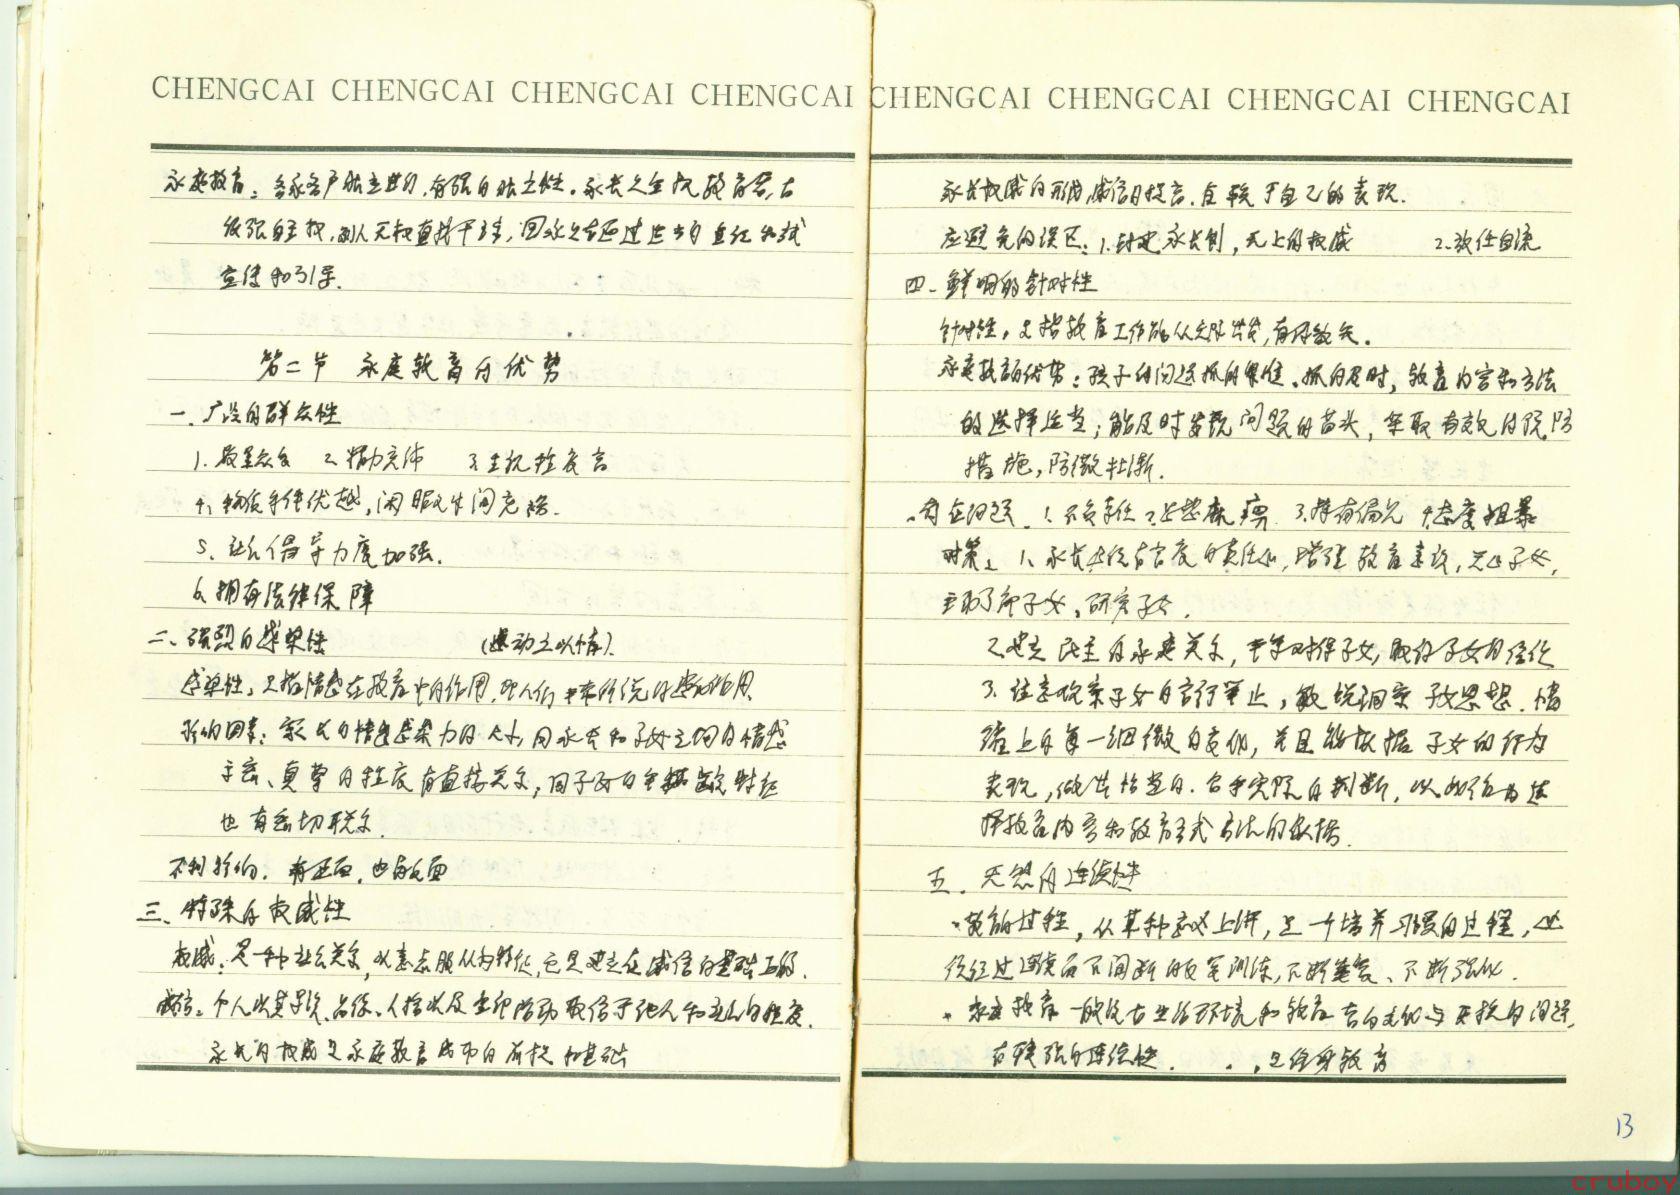 CHENGCAI CHENGCAI CHENGCAI CHENGCAI
家庭教育：各家各户独立进行，有强的独立性。家长全权教育
很强自主权，别人无权直接干涉，国家社会可通过
宣传和引导.
第二节 家庭教育的优势
一、广泛的群众性
1. 最 2. 精力充沛 3.
4. 物质条件优越，闲暇时间充裕.
5. 社会倡导力度加强.
6. 拥有法律保障
二、强烈的感染性 (感动之以情).
感染性，是指情感在教育中的作用，
影响因素：家长的情感感染力的大小，同家长和子女之间的情感
亲密、真挚的程度有直接关系，同子女的年龄特征
也有密切联系.
不利影响，有正面，也有负面
三、特殊的权威性
权威：是一种社会关系，以意志服从为特征，它是建立在威信的基础上的.
威信：个人以其学识、品德、人格以及
家长的权威是家庭教育成功的前提和基础
CHENGCAI CHENGCAI CHENGCAI CHENGCAI
家长权威的形成，威信的提高，自己的表现.
应避免的误区：1. 封建家长制，无上的权威 2. 放任自流
四、鲜明的针对性
针对性，是指教育工作能从实际出发，有的放矢.
家庭教育的优势：孩子的问题抓的准，抓的及时，教育内容和方法
的选择适当；能及时发现问题的苗头，采取有效的预防
措施，防微杜渐.
存在问题 1. 不负责任 2. 麻痹 3. 持有偏见 4. 态度粗暴
对策： 1. 家长应该高度的责任心，增强教育意识，关心子女，
主动了解子女，研究子女.
2. 建立民主的家庭关系，平等对待子女，取得子女的信任
3. 注意观察子女的言行举止，敏锐洞察子女思想、情
绪上的每一细微的变化，并且能依据子女的行为
表现，做出恰当的、合乎实际的判断，以此作为选
择教育内容和教育方式方法的依据.
五、天然的连续性
教育的过程，从某种意义上讲，是一个培养习惯的过程，必
须经过连续而不间断的反复训练，不断重复、不断强化.
家庭教育一般没有生活环境和教育者的变化与更换的问题，
有较强的连续性. 是终身教育
13
cruboy